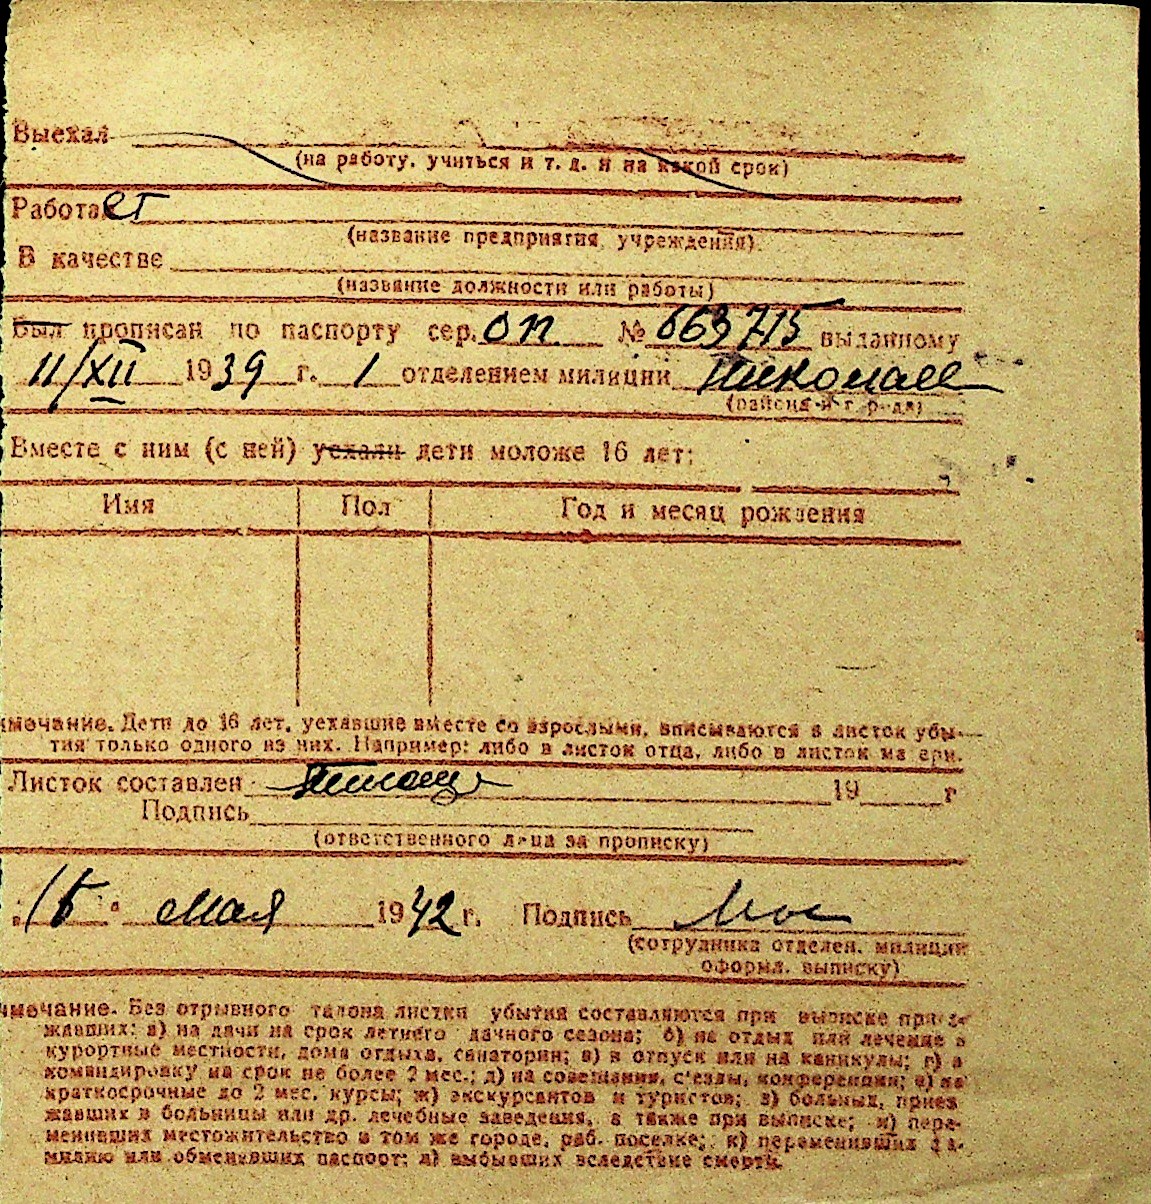 Выехал
(на работу, учиться и т. д. и на какой срок)
Работает
(название предприятия, учреждения)
В качестве
(название должности или работы)
Был прописан по паспорту сер. ОП № 663715 выданному
11/XII 1939 г. 1 отделением милиции
(района и города)
Вместе с ним (с ней) уехали дети моложе 16 лет:
Имя Пол Год и месяц рождения
имечание. Дети до 16 лет, уехавшие вместе со взрослыми, вписываются в листок убы-
тия только одного из них. Например: либо в листок отца, либо в листок матери.
Листок составлен 19 г
Подпись
(ответственного лица за прописку)
мая 1942 г. Подпись
(сотрудника отделен. милиции
оформл. выписку)
имечание. Без отрывного талона листки убытия составляются при выписке приез-
жавших: а) на дачи на срок летнего дачного сезона; б) на отдых или лечение в
курортные местности, дома отдыха, санатории; в) в отпуск или на каникулы; г) в
командировку на срок не более 2 мес.; д) на совещания, с'езды, конференции; е) на
краткосрочные до 2 мес. курсы; ж) экскурсантов и туристов; з) больных, приез
жавших в больницы или др. лечебные заведения, а также при выписке; и) пере-
менивших местожительство в том же городе, раб. поселке; к) переменивших фа-
милию или обменявших паспорт; л) выбывших вследствие смерти.